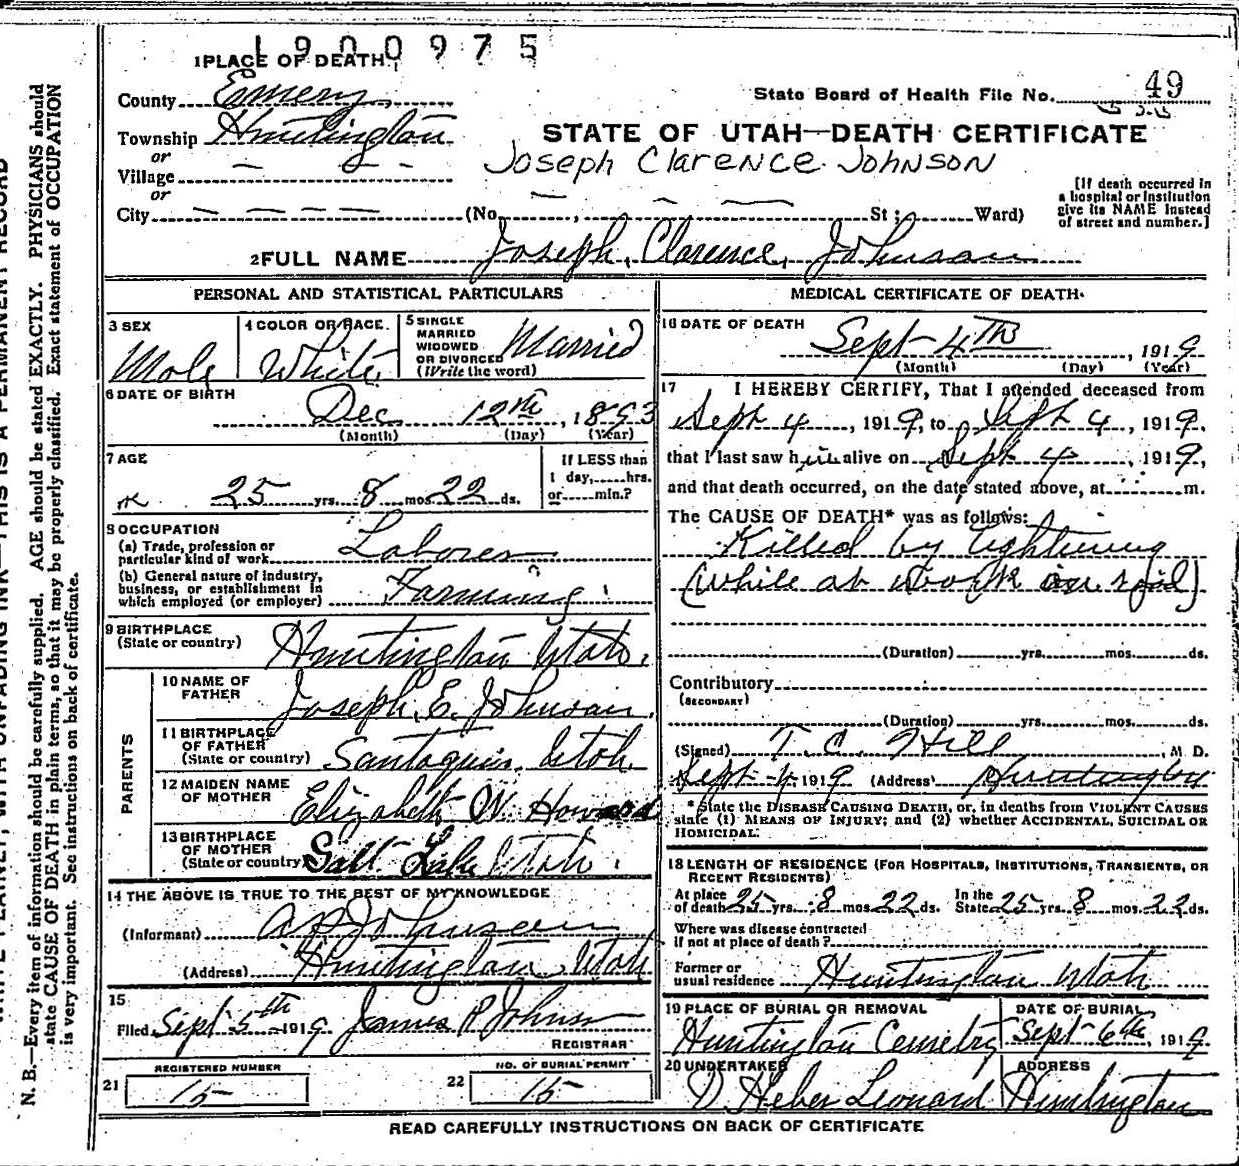 1900975
1 PLACE OF DEATH
County Emery
State Board of Health File No. 49
Township Huntington
or
STATE OF UTAH—DEATH CERTIFICATE
Joseph Clarence Johnson
Village
or
City (No. , St; Ward)
[If death occurred in a hospital or institution give its NAME instead of street and number.]
2 FULL NAME Joseph Clarence Johnson
PERSONAL AND STATISTICAL PARTICULARS
3 SEX Male
4 COLOR OR RACE. White
5 SINGLE MARRIED WIDOWED OR DIVORCED (Write the word) Married
6 DATE OF BIRTH
Dec 12th, 1893
(Month) (Day) (Year)
7 AGE
25 yrs. 8 mos. 22 ds.
If LESS than 1 day, hrs. or min.?
8 OCCUPATION
(a) Trade, profession or particular kind of work Laborer
(b) General nature of industry, business, or establishment in which employed (or employer) Farming
9 BIRTHPLACE
(State or country) Huntington Utah.
PARENTS
10 NAME OF FATHER Joseph E. Johnson.
11 BIRTHPLACE OF FATHER (State or country) Santaquin, Utah.
12 MAIDEN NAME OF MOTHER Elizabeth W. Howard
13 BIRTHPLACE OF MOTHER (State or country) Salt Lake Utah.
14 THE ABOVE IS TRUE TO THE BEST OF MY KNOWLEDGE
(Informant) Johnson
(Address) Huntington Utah
15
Filed Sept 5th 1919 James P Johnson
REGISTRAR
21 REGISTERED NUMBER 15
22 NO. OF BURIAL PERMIT 15
MEDICAL CERTIFICATE OF DEATH.
16 DATE OF DEATH Sept 4TH, 1919
(Month) (Day) (Year)
17 I HEREBY CERTIFY, That I attended deceased from
Sept 4, 1919, to Sept 4, 1919,
that I last saw him alive on Sept 4, 1919,
and that death occurred, on the date stated above, at m.
The CAUSE OF DEATH* was as follows:
Killed by Lightning
(while at work
(Duration) yrs. mos. ds.
Contributory
(SECONDARY)
(Duration) yrs. mos. ds.
(Signed) T. C. Hill M D.
Sept 4 1919 (Address) Huntington
* State the DISEASE CAUSING DEATH, or, in deaths from VIOLENT CAUSES
state (1) MEANS OF INJURY; and (2) whether ACCIDENTAL, SUICIDAL OR
HOMICIDAL.
18 LENGTH OF RESIDENCE (FOR HOSPITALS, INSTITUTIONS, TRANSIENTS, OR
RECENT RESIDENTS)
At place of death 25 yrs. 8 mos. 22 ds. In the State 25 yrs. 8 mos. 22 ds.
Where was disease contracted
if not at place of death?
Former or usual residence Huntington Utah
19 PLACE OF BURIAL OR REMOVAL
Huntington Cemetry
DATE OF BURIAL
Sept 6th, 1919.
20 UNDERTAKER
D. Heber Leonard
ADDRESS
Huntington
READ CAREFULLY INSTRUCTIONS ON BACK OF CERTIFICATE
N. B.—Every item of information should be carefully supplied. AGE should be stated EXACTLY. PHYSICIANS should
state CAUSE OF DEATH in plain terms, so that it may be properly classified. Exact statement of OCCUPATION
is very important. See instructions on back of certificate.